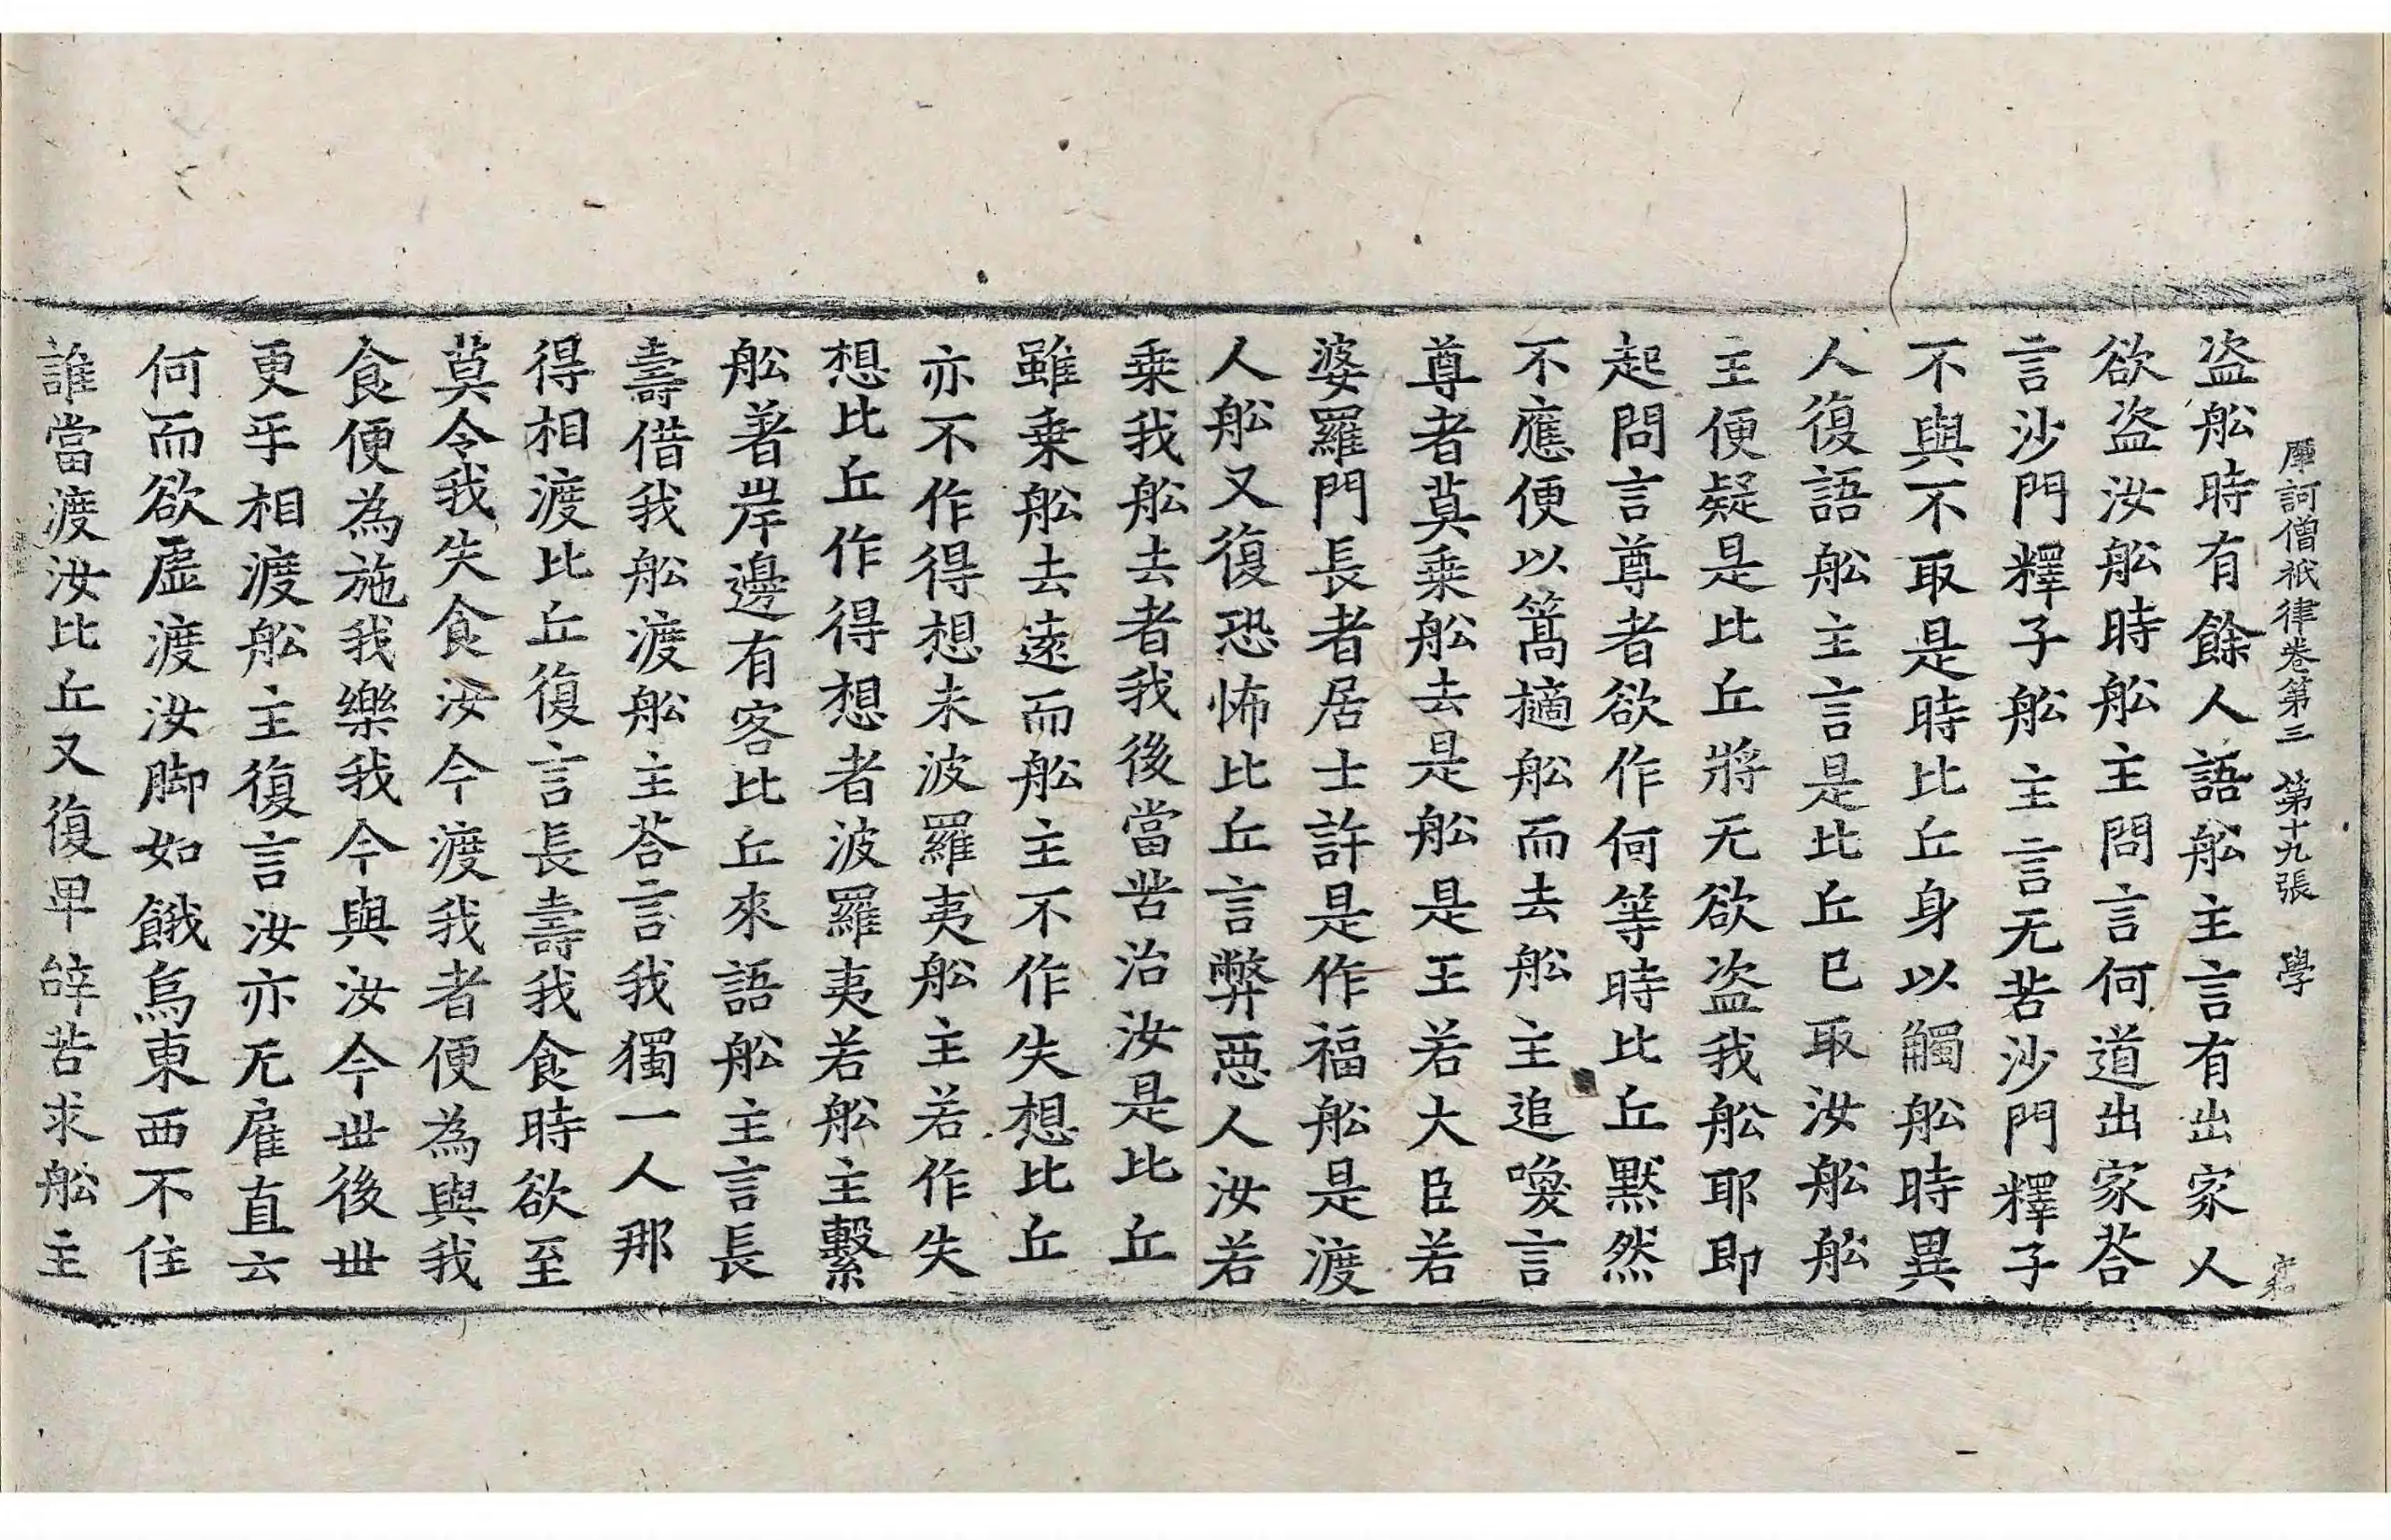 摩訶僧祇律卷第三　第十九張　學
盗舩時有餘人語舩主言有出家人
欲盗汝舩時舩主問言何道出家荅
言沙門釋子舩主言无苦沙門釋子
不與不取是時比丘身以觸舩時異
人復語舩主言是比丘已取汝舩舩
主便疑是比丘將无欲盗我舩耶即
起問言尊者欲作何等時比丘默然
不應便以篙擿舩而去舩主追喚言
尊者莫乗舩去是舩是王若大臣若
婆羅門長者居士許是作福舩是渡
人舩又復恐怖比丘言弊惡人汝若
乗我舩去者我後當苦治汝是比丘
雖乗舩去遠而舩主不作失想比丘
亦不作得想未波羅夷舩主若作失
想比丘作得想者波羅夷若舩主繫
舩著岸邊有客比丘來語舩主言長
壽借我舩渡舩主荅言我獨一人那
得相渡比丘復言長壽我食時欲至
莫令我失食汝今渡我者便為與我
食便為施我樂我今與汝今世後世
更乎相渡舩主復言汝亦无雇直云
何而欲虛渡汝脚如餓烏東西不住
誰當渡汝比丘又復卑辝苦求舩主